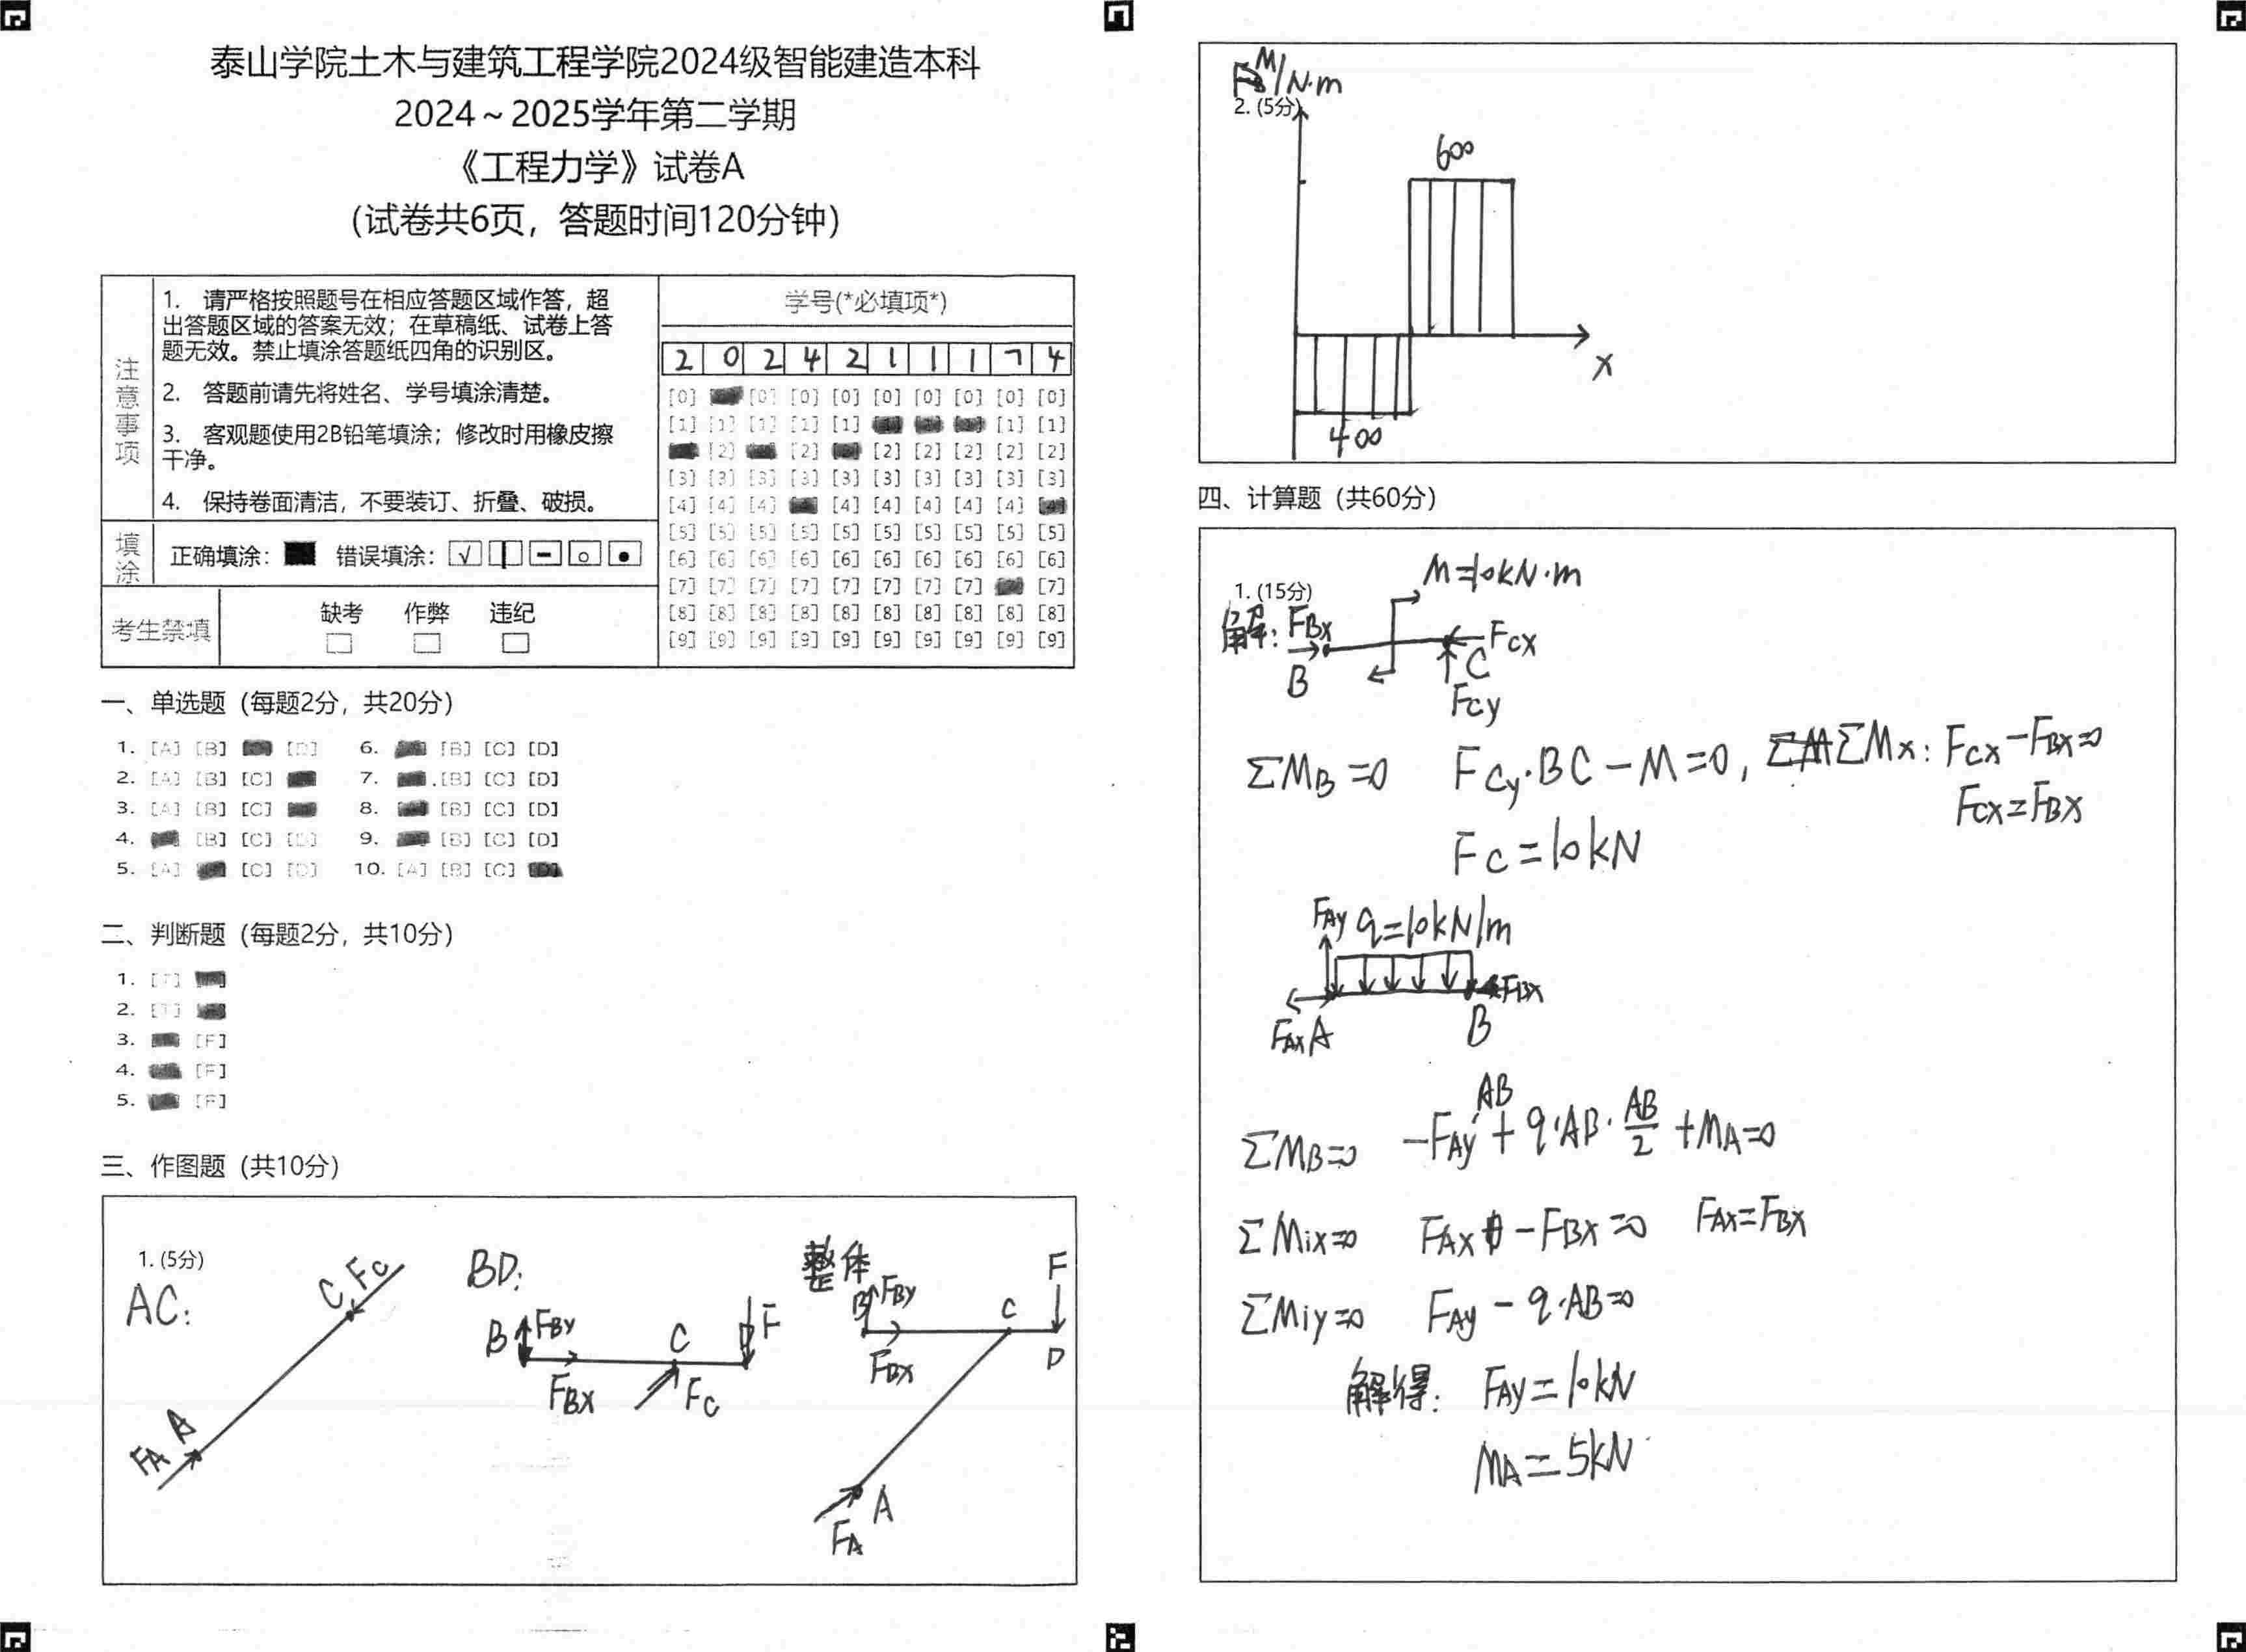 泰山学院土木与建筑工程学院2024级智能建造本科
2024～2025学年第二学期
《工程力学》试卷A
(试卷共6页，答题时间120分钟)
注意事项
1. 请严格按照题号在相应答题区域作答，超
出答题区域的答案无效；在草稿纸、试卷上答
题无效。禁止填涂答题纸四角的识别区。
2. 答题前请先将姓名、学号填涂清楚。
3. 客观题使用2B铅笔填涂；修改时用橡皮擦
干净。
4. 保持卷面清洁，不要装订、折叠、破损。
填涂
正确填涂： 错误填涂：
考生禁填
缺考 作弊 违纪
学号(*必填项*)
2 0 2 4 2 1 1 1 7 4
[0] [0] [0] [0] [0] [0] [0] [0] [0]
[1] [1] [1] [1] [1] [1] [1]
[2] [2] [2] [2] [2] [2] [2]
[3] [3] [3] [3] [3] [3] [3] [3] [3] [3]
[4] [4] [4] [4] [4] [4] [4] [4] [4]
[5] [5] [5] [5] [5] [5] [5] [5] [5] [5]
[6] [6] [6] [6] [6] [6] [6] [6] [6] [6]
[7] [7] [7] [7] [7] [7] [7] [7] [7]
[8] [8] [8] [8] [8] [8] [8] [8] [8] [8]
[9] [9] [9] [9] [9] [9] [9] [9] [9] [9]
一、单选题 (每题2分，共20分)
1. [A] [B] [D] 6. [B] [C] [D]
2. [A] [B] [C] 7. [B] [C] [D]
3. [A] [B] [C] 8. [B] [C] [D]
4. [B] [C] [D] 9. [B] [C] [D]
5. [A] [C] [D] 10. [A] [B] [C] [D]
二、判断题 (每题2分，共10分)
1. [T]
2. [T]
3. [F]
4. [F]
5. [F]
三、作图题 (共10分)
1. (5分)
AC:
C Fc
FA A
BD:
B FBy C F
FBx Fc
整体
B FBy C F
FBx D
FA A
M/N·m
2. (5分)
600
x
400
四、计算题 (共60分)
1. (15分)
M=10kN·m
解: FBx FCx
B C
FCy
ΣMB=0 FCy·BC-M=0, ΣMx: FCx-FBx=0
FCx=FBx
FC=10kN
FAy q=10kN/m
FBx
FAx A B
ΣMB=0 -FAy·AB+q·AB·AB/2+MA=0
ΣMix=0 FAx-FBx=0 FAx=FBx
ΣMiy=0 FAy-q·AB=0
解得: FAy=10kN
MA=5kN